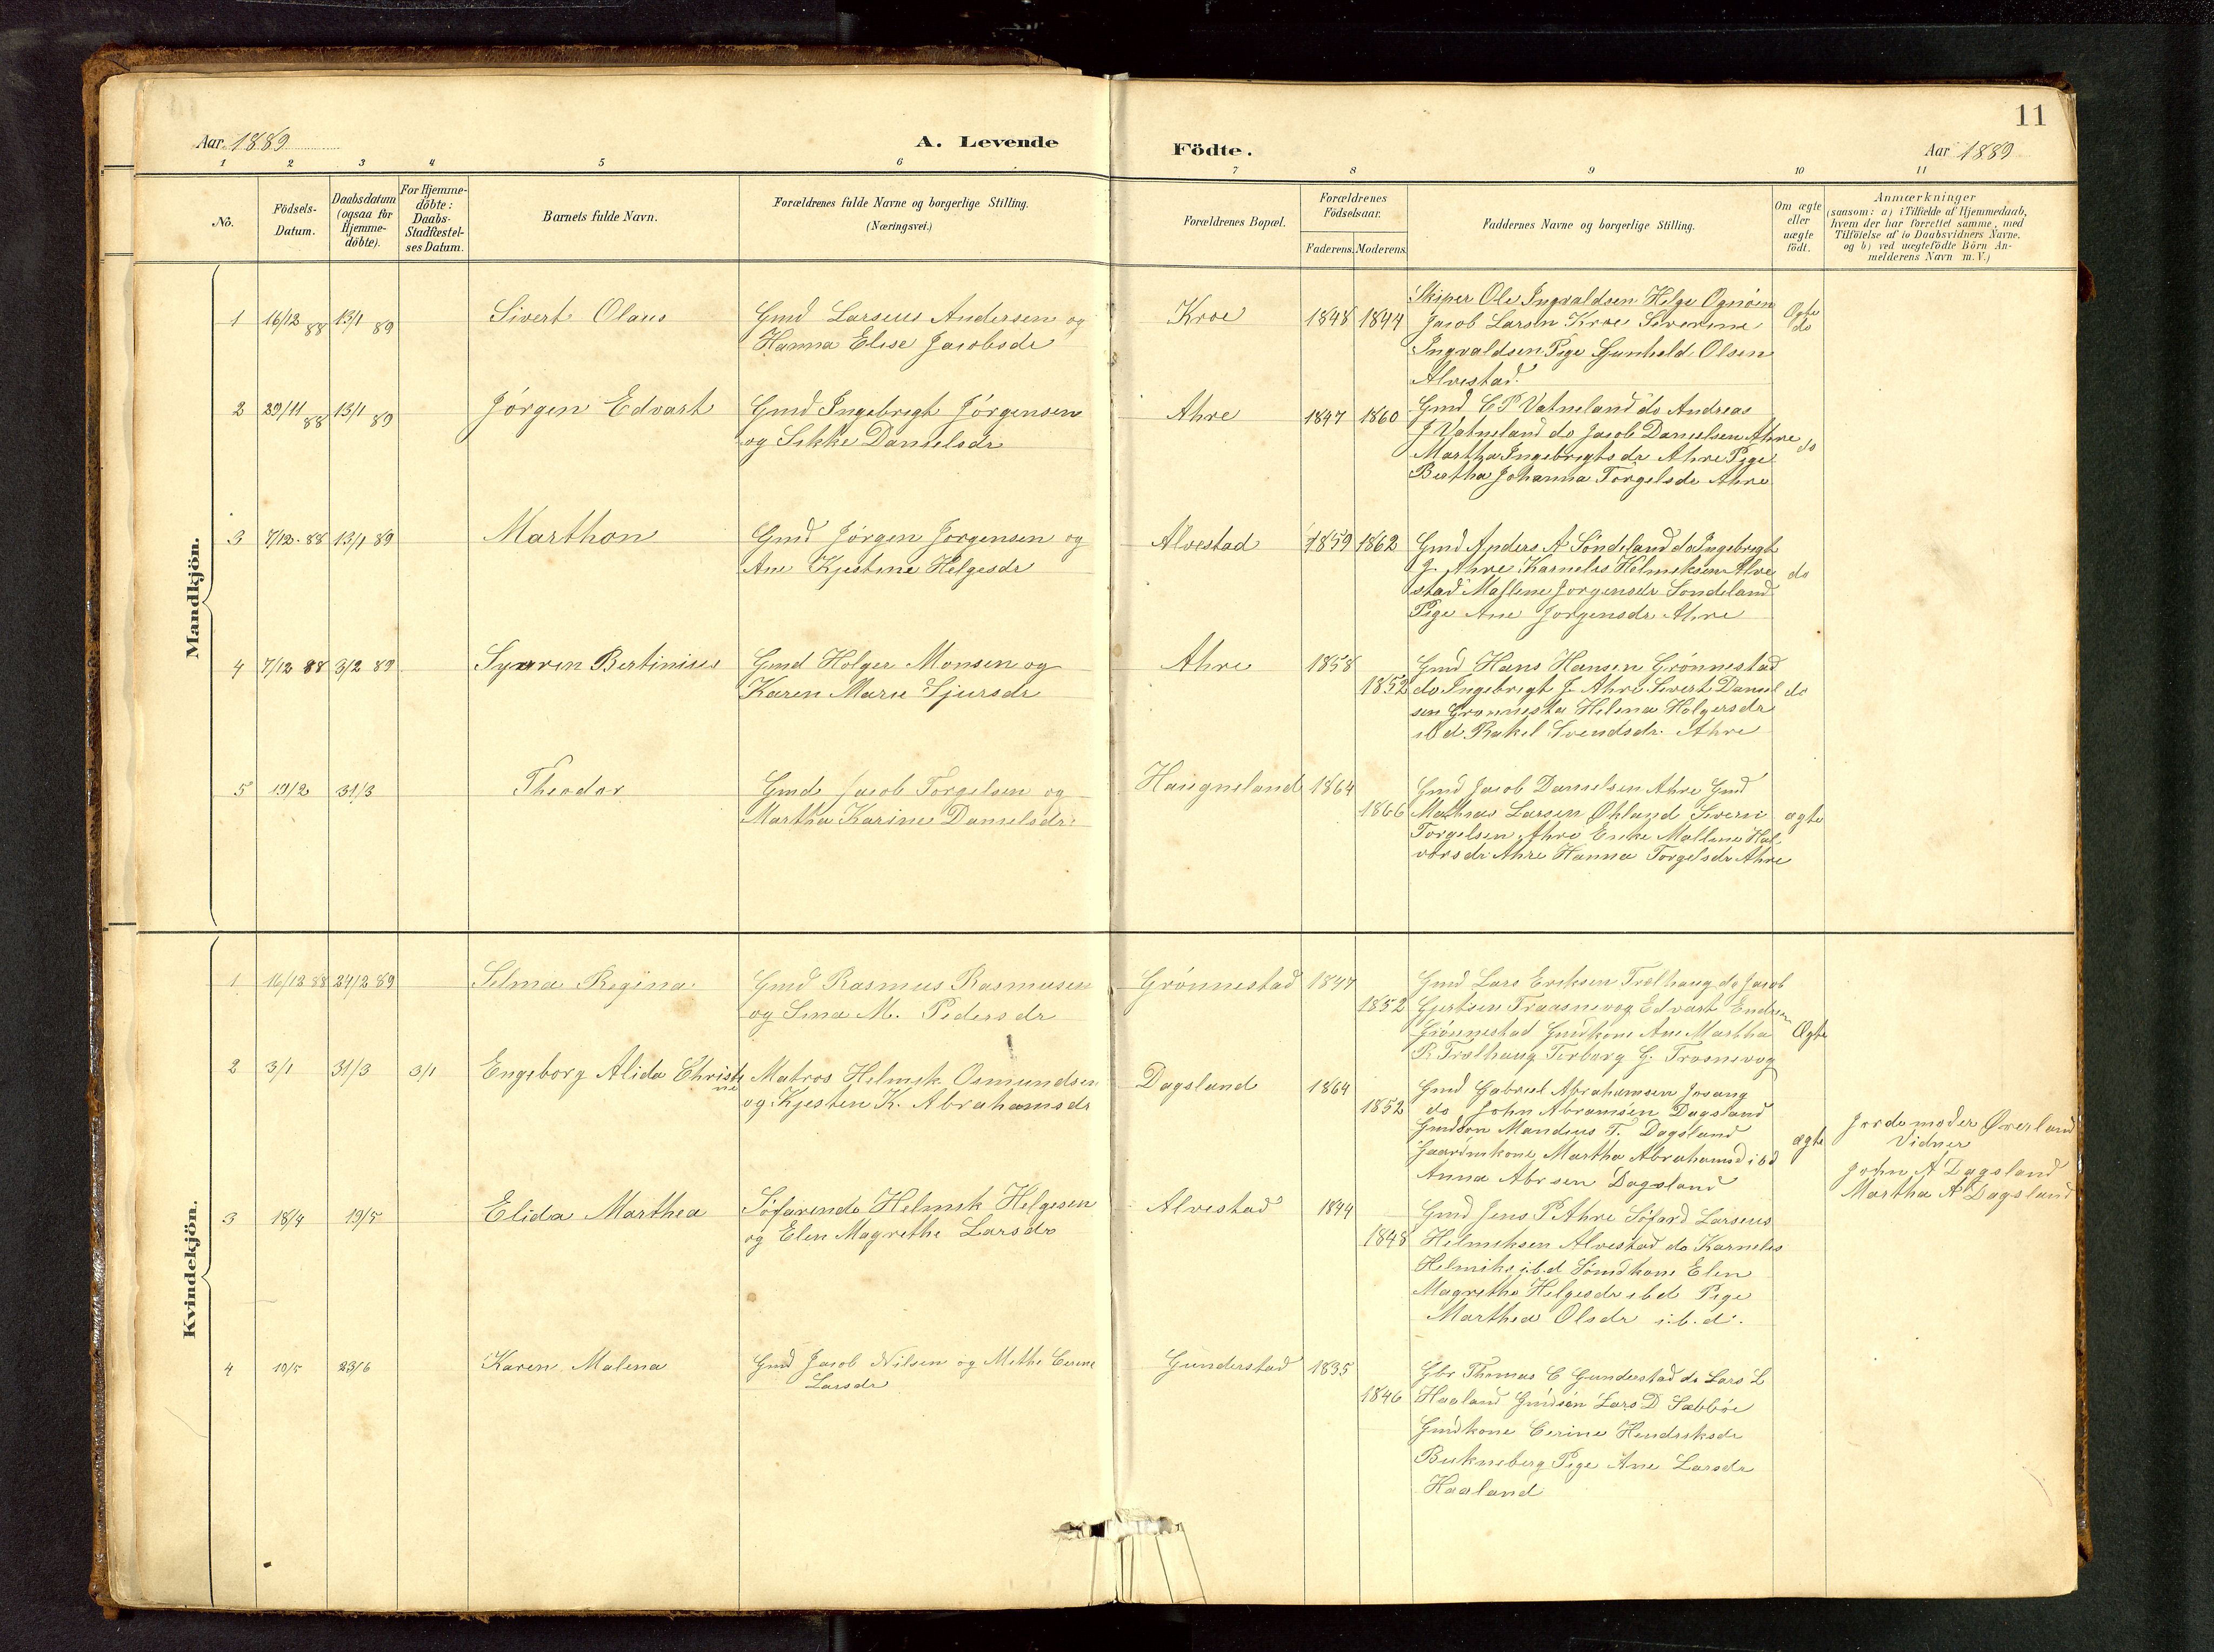 11
Aar 1889
A. Levende
Födte.
Aar 1889
1 2 3 4 5 6 7 8 9 10 11
No.
Födsels-
Datum.
Daabsdatum
(ogsaa for
Hjemme-
döbte).
For Hjemme-
döbte:
Daabs-
Stadfæstel-
ses Datum.
Barnets fulde Navn.
Forældrenes fulde Navne og borgerlige Stilling.
(Næringsvei.)
Forældrenes Bopæl.
Forældrenes
Födselsaar.
Faderens. Moderens.
Faddernes Navne og borgerlige Stilling.
Om ægte
eller
uægte
födt.
Anmærkninger
(saasom: a) i Tilfælde af Hjemmedaab,
hvem der har forrettet samme, med
Tilföielse af to Daabsvidners Navne.
og b) ved uægtefödte Börn An-
melderens Navn m. V.)
Mandkjön.
1 16/12 88 13/1 89 Sivert Olaus
Gmd Larseus Andersen og
Hanna Elise Jacobsdr
Kroe 1848 1844
Skiper Ole Ingvaldsen Helge Ognöen
Jacob Larsen Kroe Severine
Ingvaldsen Pige Gunheld Olsen
Alvestad.
Ægte
do
2 29/11 88 13/1 89 Jörgen Edvart
Gmd Ingebrigt Jörgensen
og Sikke Danielsdr
Ahre 1847 1860
Gmd C P Vatneland do Andreas
J Vatneland do Jacob Danielsen Ahre
Martha Ingebrigtsdr Ahre Pige
Bertha Johanna Torgelsdr Ahre
do
3 7/12 88 13/1 89 Marthon
Gmd Jörgen Jorgensen og
Ane Kjestine Helgesdr
Alvestad 1859 1862
Gmd Anders A Söndeland do Ingebregt
J. Ahre Karnelis Helmeksen Alve
stad Malene Jorgensdr Sondeland
Pige Ane Jorgensdr Ahre
do
4 7/12 88 3/2 89 Syvren Bertinius
Gmd Holger Monsen og
Karen Marie Sjursdr
Ahre 1858
1852
Gmd Hans Hansen Grönnestad
do Ingebrigt J. Ahre Sivert Daniel
sen Grønnesta Helena Holgersdr
ibd Rakel Svendsdr. Ahre
do
5 19/2 31/3 Theodor
Gmd Jacob Torgelsen og
Martha Karine Danielsdr.
Haugneland 1864
1866
Gmd Jacob Danielsen Ahre Gmd
Mathias Larsen Øhland Severin
Torgelsen Ahre Enke Mallena Hal
vorsdr Ahre Hanna Torgelsdr Ahre
ægte
Kvindekjön.
1 16/12 88 24/2 89 Selma Regina
Gmd Rasmus Rasmusen
og Sina M. Pedersdr
Grönnestad 1847
1852
Gmd Lars Eriksen Trælhaug do Jacob
Gjertsen Traasnevog Edvart Endresen
Grönnestad Gmdkone Ane Martha
R Trælhaug Torborg G. Trosnevog
Ægte
2 3/1 31/3 3/1 Engeborg Alida Christi
ne
Matros Helmik Osmundsen
og Kjesten K. Abrahamsdr
Dagsland 1864
1852
Gmd Gabriel Abrahamsen Josang
do John Abramsen Dagsland
Gmdson Mandius T. Dagsland
Gaardmkone Martha Abrahamsd ibd
Anna Abrsen Dagsland
ægte
Jordemoder Øverland
Vidner
John A Dagsland
Martha A Dagsland
3 18/4 19/5 Elida Marthea
Söfarende Helmek Helgesen
og Elen Magrethe Larsdr
Alvestad 1844
1848
Gmd Jens P Ahre Söfard Larseus
Helmeksen Alvestad do Karnelis
Helmiks i.b.d Sömdkone Elen
Magretha Helgesdr ibd Pige
Marthea Olsdr i.b.d.
4 10/5 23/6 Karen Malena
Gmd Jacob Nilsen og Methe Cerine
Larsdr
Gunderstad 1835
1846
Gbr. Thomas C Gunderstad do Lars L
Haaland Gmdsön Lars D Sæbböe
Gmdkone Cerine Hendriksdr
Bukneberg Pige Ane Larsdr
Haaland